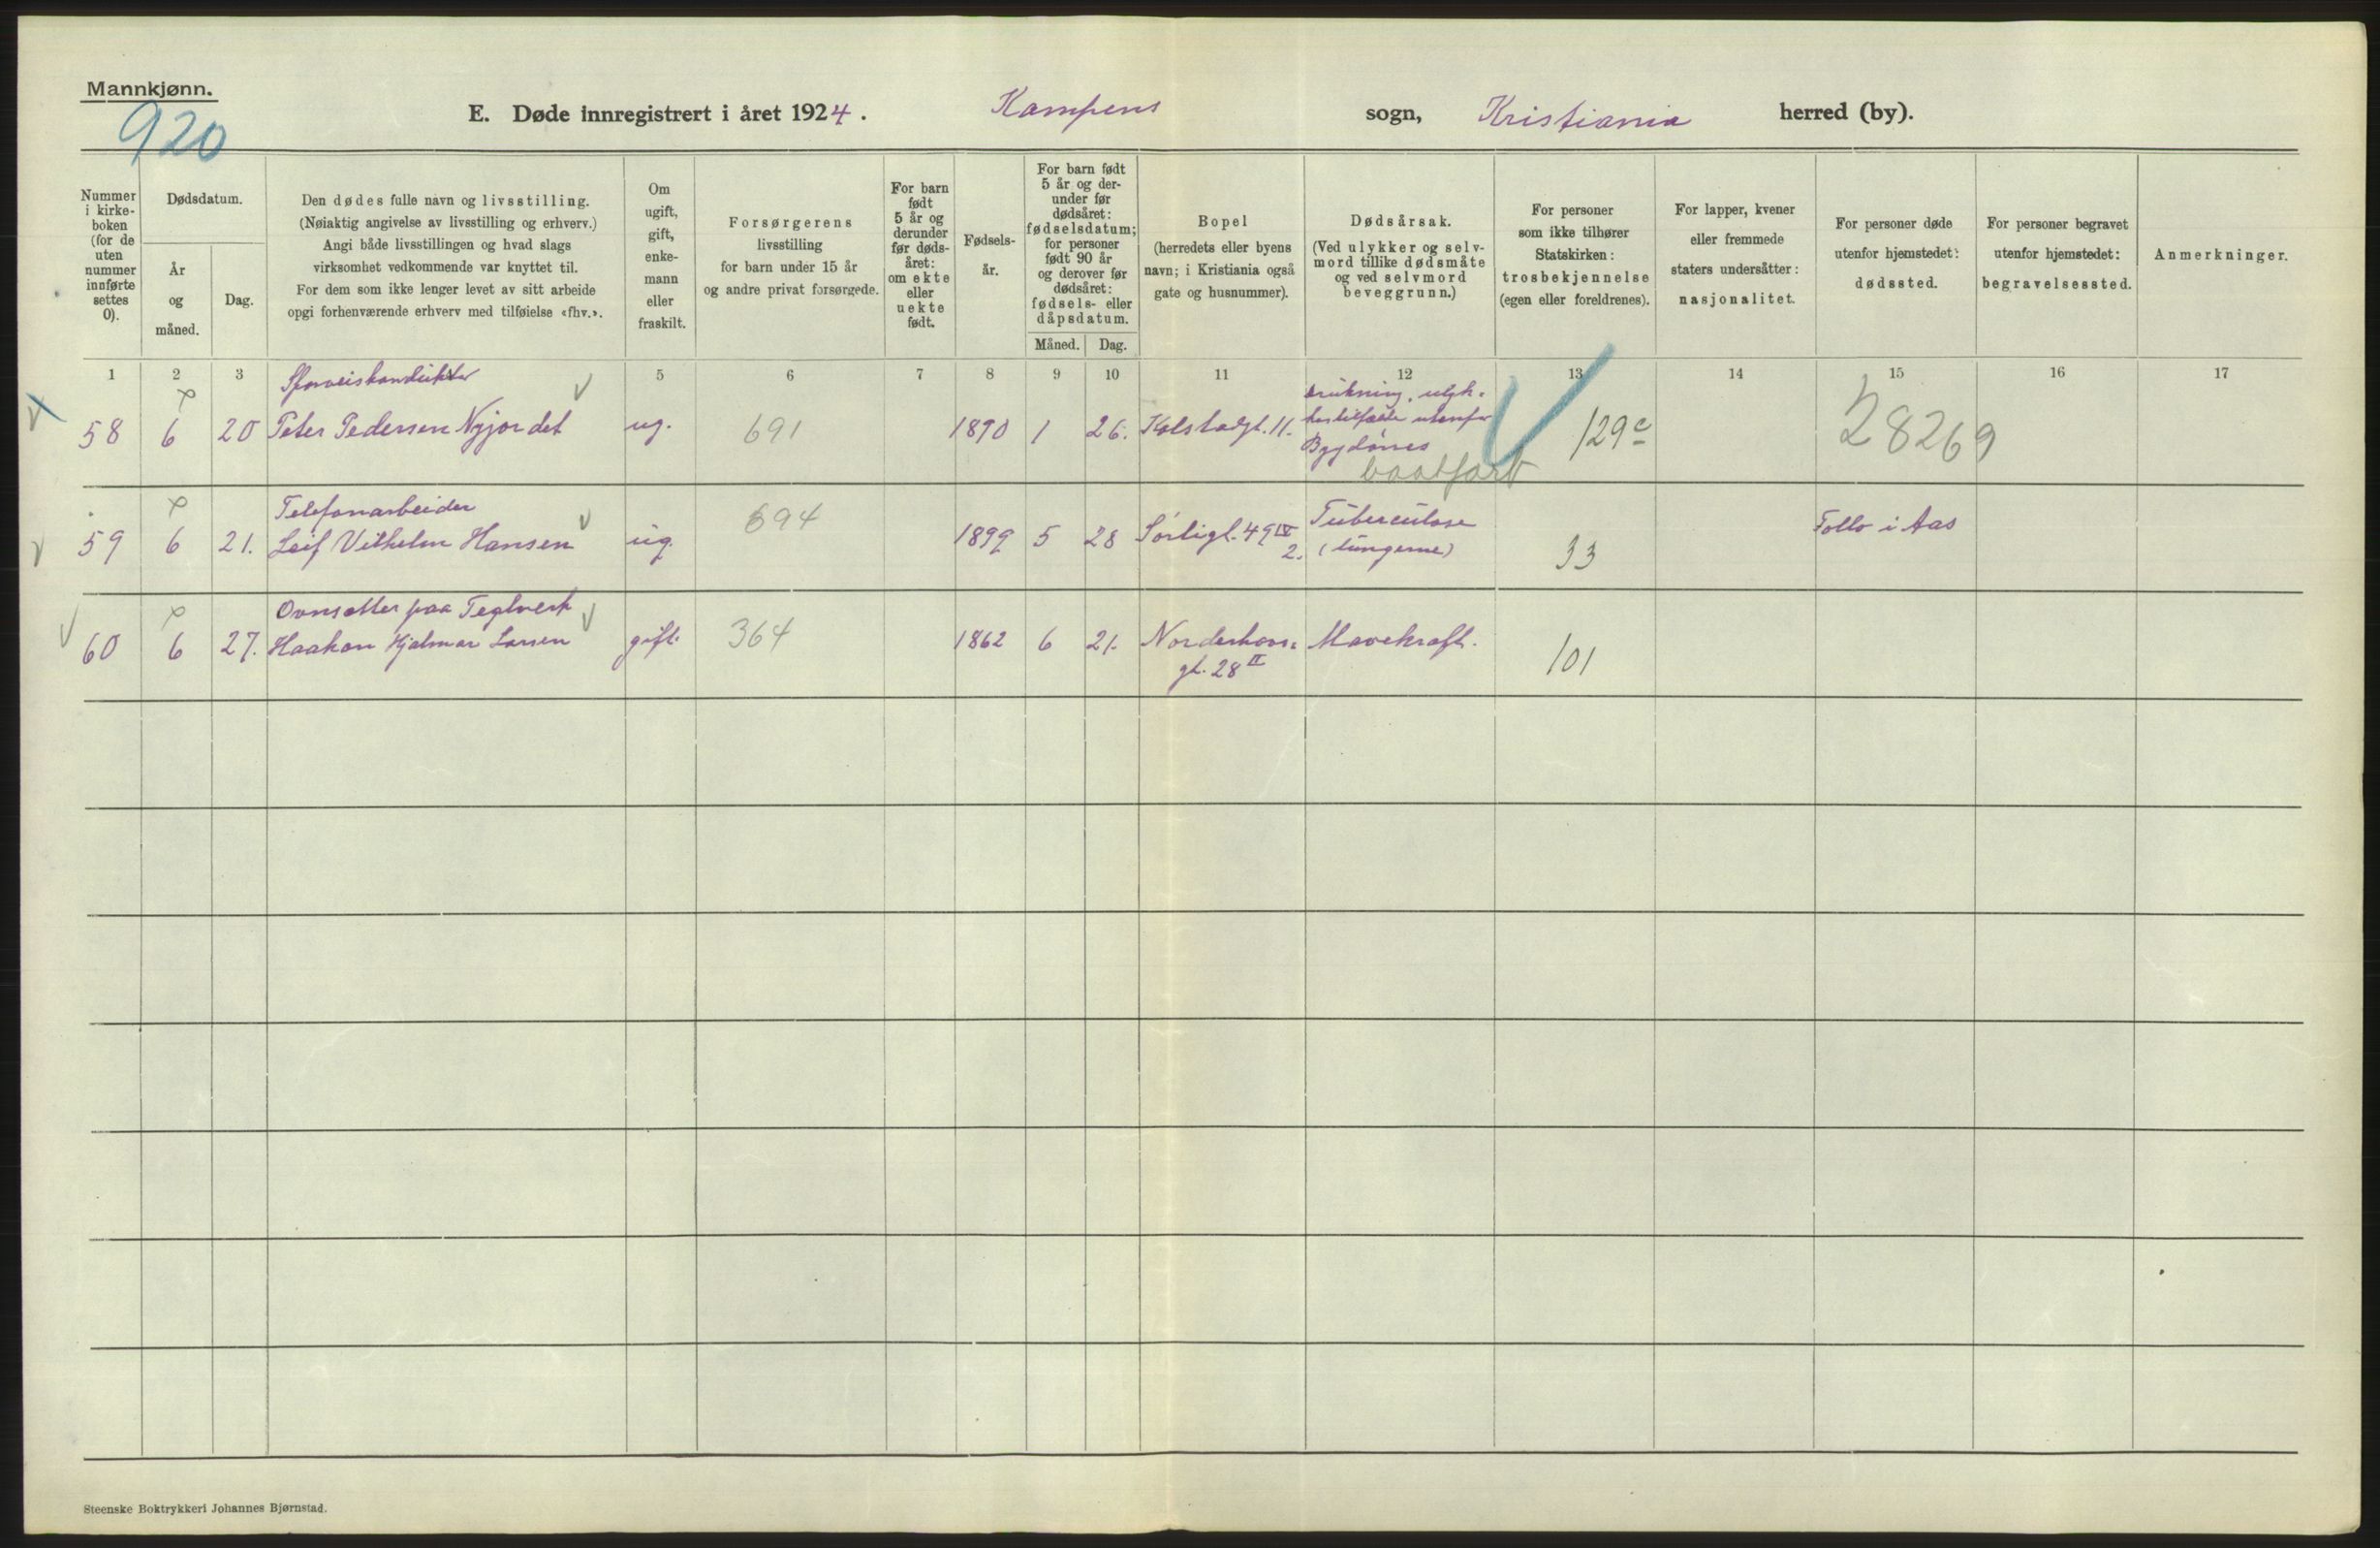 Mannkjønn.
920
E. Døde innregistrert i året 1924. Kampens sogn, Kristiania herred (by).
Nummer
i kirke-
boken
(for de
uten
nummer
innførte
settes
0).
Dødsdatum.
År
og
måned.
Dag.
Den dødes fulle navn og livsstilling.
(Nøiaktig angivelse av livsstilling og erhverv.)
Angi både livsstillingen og hvad slags
virksomhet vedkommende var knyttet til.
For dem som ikke lenger levet av sitt arbeide
opgi forhenværende erhverv med tilføielse «fhv.».
Om
ugift,
gift,
enke-
mann
eller
fraskilt.
Forsørgerens
livsstilling
for barn under 15 år
og andre privat forsørgede.
For barn
født
5 år og
derunder
før døds-
året:
om ekte
eller
uekte
født.
Fødsels-
år.
For barn født
5 år og der-
under før
dødsåret:
fødselsdatum;
for personer
født 90 år
og derover før
dødsåret:
fødsels- eller
dåpsdatum.
Måned. Dag.
Bopel
(herredets eller byens
navn; i Kristiania også
gate og husnummer).
Dødsårsak.
(Ved ulykker og selv-
mord tillike dødsmåte
og ved selvmord
beveggrunn.)
For personer
som ikke tilhører
Statskirken:
trosbekjennelse
(egen eller foreldrenes).
For lapper, kvener
eller fremmede
staters undersåtter:
nasjonalitet.
For personer døde
utenfor hjemstedet:
dødssted.
For personer begravet
utenfor hjemstedet:
begravelsessted.
Anmerkninger.
1 2 3 5 6 7 8 9 10 11 12 13 14 15 16 17
Sporveiskonduktør
58 6 20 Peter Pedersen Nyjordet ug. 691 1890 1 26. Kolstadgt. 11.
drukning, ulyk-
kestilfælde utenfor
Bygdønes
baatfart
129c
28269
Telefonarbeider
59 6 21. Leif Vilhelm Hansen ug. 694 1899 5 28 Sørligt. 49 IV
2.
Tuberculose
(lungerne)
33
Follo i Aas
Ovnsetter paa Teglverk
60 6 27. Haakon Hjalmar Larsen gift. 364 1862 6 21. Norderhovs-
gt. 28 II
Mavekræft.
101
Steenske Boktrykkeri Johannes Bjørnstad.